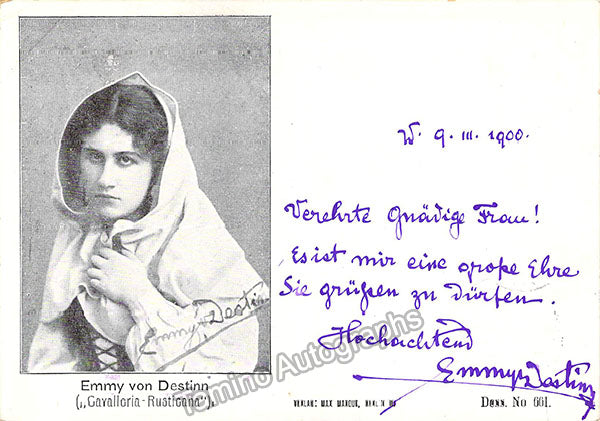 W. 9. III. 1900.
Verehrte Gnädige Frau!
Es ist mir eine große Ehre
Sie grüßen zu dürfen.
Hochachtend
Emmy Destinn
Emmy Destinn
Emmy von Destinn
(„Cavalleria-Rusticana“).
VERLAG: MAX MARCUS, BERLIN
Denn. No 661.
Tamino Autographs